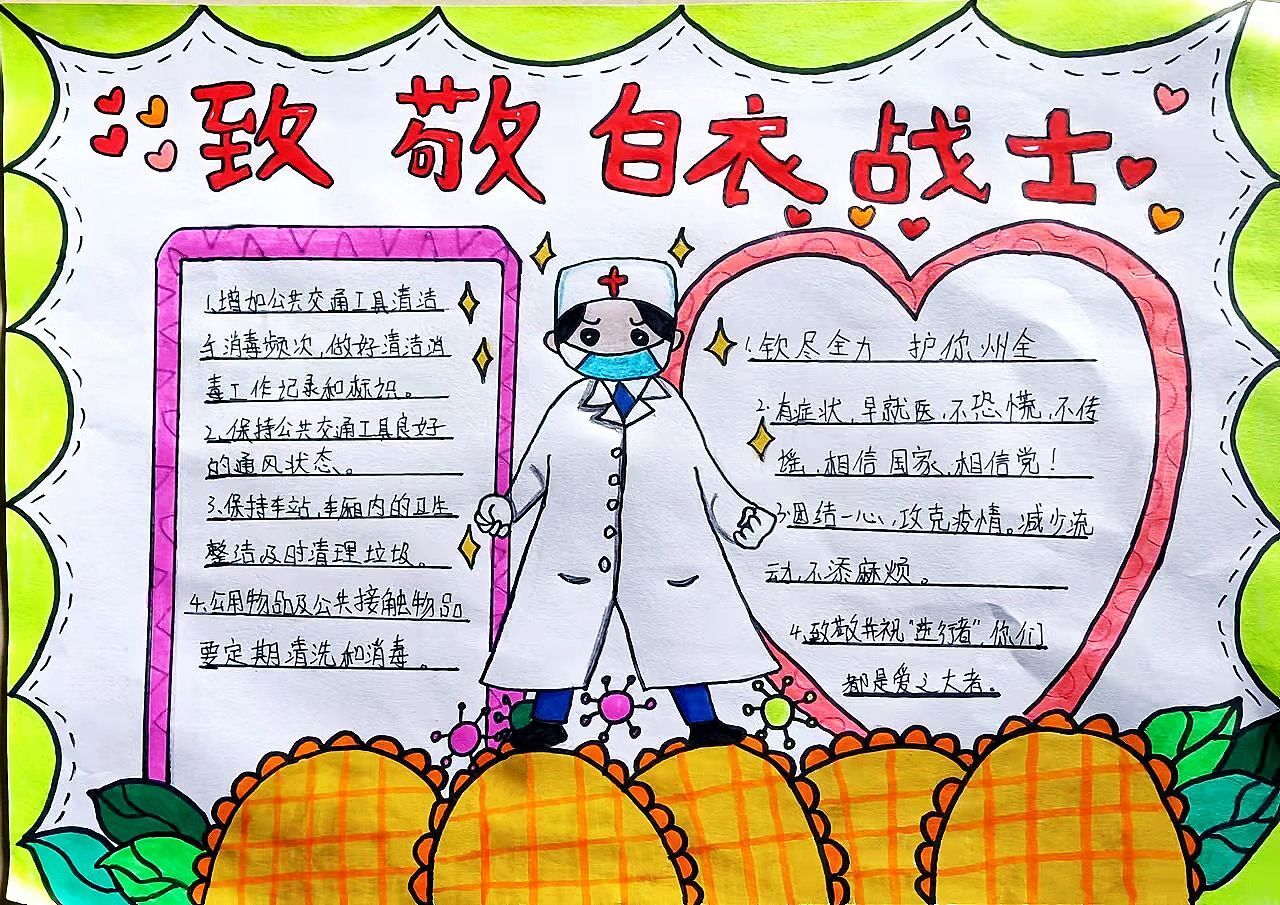 致敬白衣战士
1、增加公共交通工具清洁
与消毒频次,做好清洁消
毒工作记录和标识。
2、保持公共交通工具良好
的通风状态。
3、保持车站,车厢内的卫生
整洁及时清理垃圾。
4、公用物品及公共接触物品
要定期清洗和消毒。
1、钦尽全力 护你州全
2、有症状,早就医,不恐慌,不传
摇,相信国家,相信党!
3、团结一心,攻克疫情。减少流
动,不添麻烦。
4、致敬并祝“逆行者”,你们
都是爱之大者。